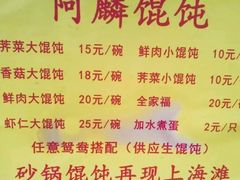 阿麟馄饨
荠菜大馄饨 15元/碗 鲜肉小馄饨 10元/
香菇大馄饨 18元/碗 荠菜小馄饨 10元/
鲜肉大馄饨 20元/碗 全家福 20元/
虾仁大馄饨 25元/碗 加水煮蛋 2元/只
任意鸳鸯搭配（供应生馄饨）
砂锅馄饨再现上海滩